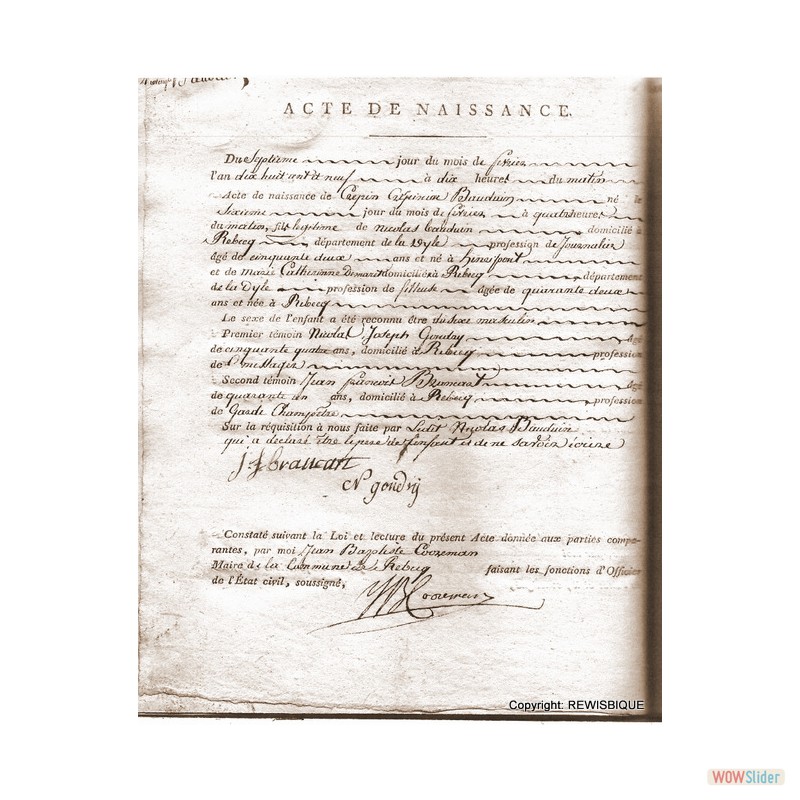 ACTE DE NAISSANCE.
Du Septieme jour du mois de fevrier
l'an dix huit cent et neuf à dix heures du matin
Acte de naissance de Crepin Crepinien Bauduin né le
Sixieme jour du mois de fevrier à quatre heures
du matin, fils legitime de Nicolas bauduin domicilié à
Rebecq département de la Dyle profession de Journalier
âgé de cinquante deux ans et né à
et de Marie Catherienne domiciliée à Rebecq département
de la Dyle profession de fileuse âgée de quarante deux
ans et née à Rebecq
Le sexe de l'enfant a été reconnu être du sexe masculin
Premier témoin Nicolas Joseph Goudry âgé
de cinquante quatre ans, domicilié à Rebecq profession
de Messager
Second témoin Jean francois âgé
de quarante un ans, domicilié à Rebecq profession
de Garde Champetre
Sur la réquisition à nous faite par Ledit Nicolas Bauduin
qui a declaré être le pere de l'enfant et de ne savoir écrire
N goudrij
Constaté suivant la Loi et lecture du présent Acte donnée aux parties compa-
rantes, par moi Jean Baptiste Cooreman
Maire de la Commune de Rebecq faisant les fonctions d'Officier
de l'État civil, soussigné,
JB Cooreman
Copyright: REWISBIQUE
WOWSlider